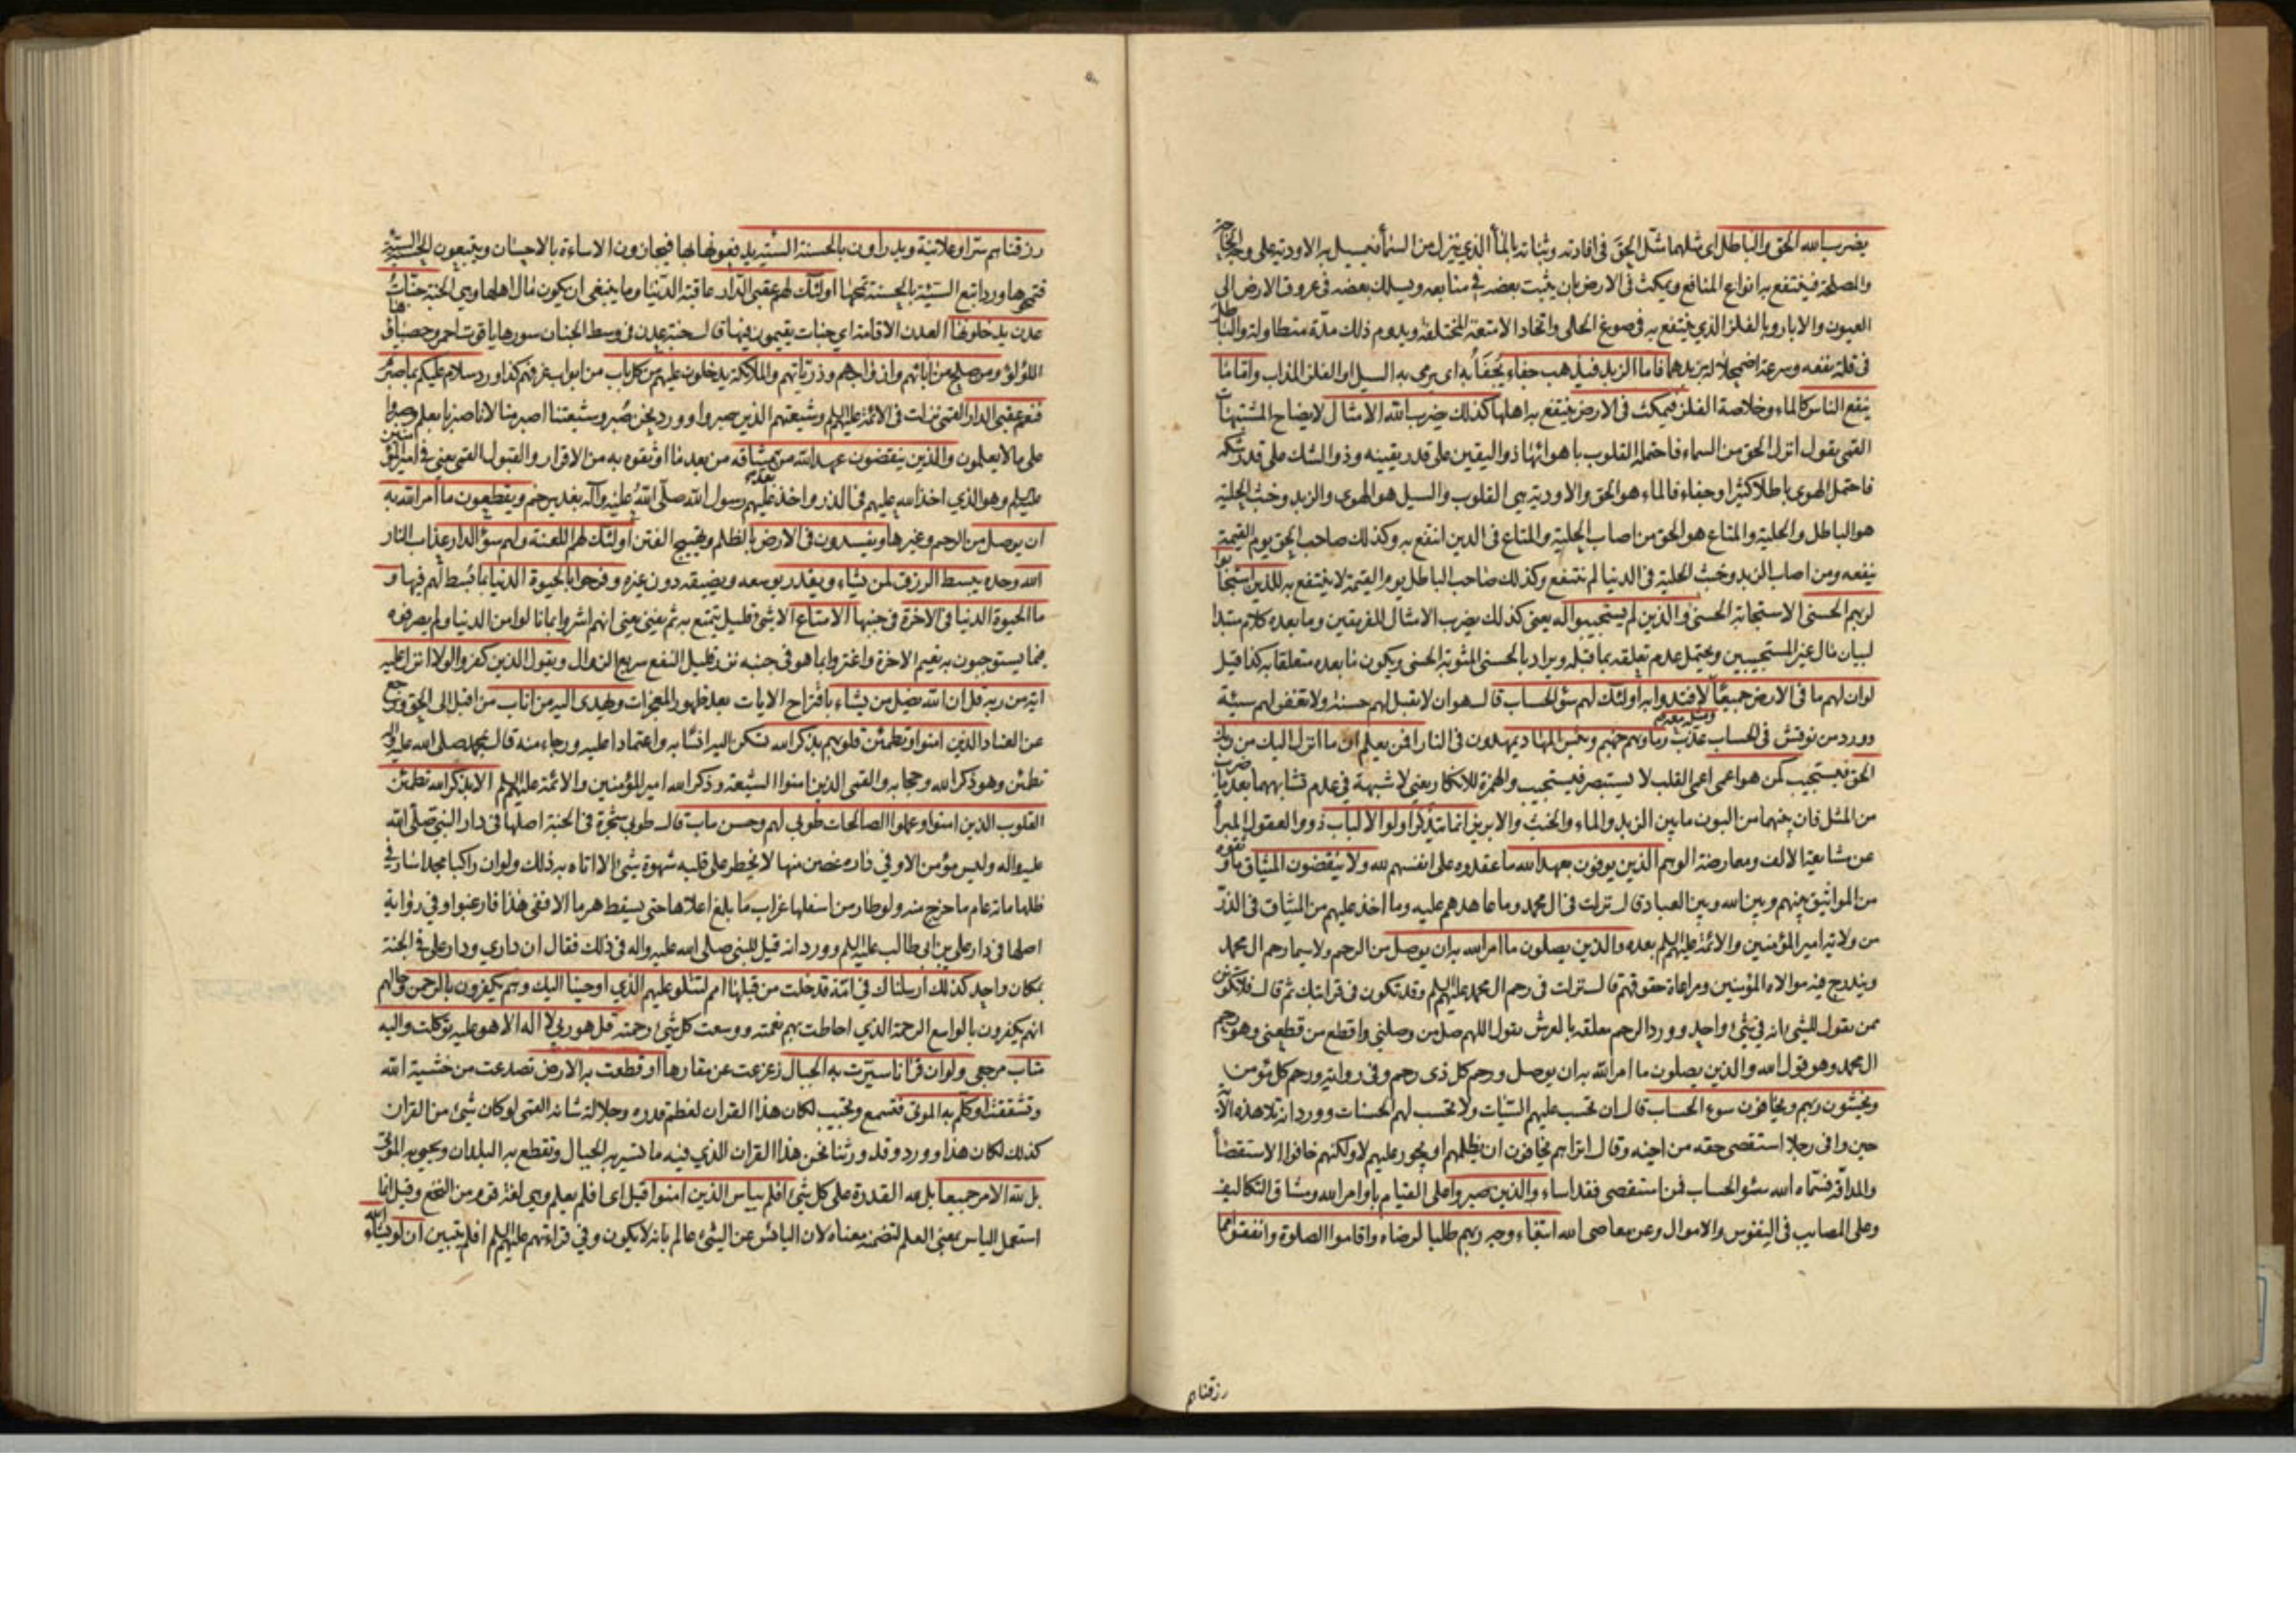 يضرب الله الحق والباطل اى مثلهما مثّل الحق فى افادته وثباته بالماء الذي ينزل من السماء فيسيل به الاودية على وجه الحاجة
والمصلحة فينتفع به انواع المنافع ويمكث فى الارض بان يثبت بعضه فى منابعه ويسلك بعضه فى عروق الارض الى
العيون والابار وبالفلز الذي ينتفع به فى صوغ الحلى واتخاذ الامتعة المختلفة ويدوم ذلك مدّة متطاولة والباطل
فى قلة نفعه وسرعة اضمحلاله بزبدهما فاما الزبد فيذهب جفاء يُجفَأ به اى يرمى به السيل او الفلز المذاب واما ما
ينفع الناس كالماء وخلاصة الفلز فيمكث فى الارض ينتفع به اهلها كذلك يضرب الله الامثال لايضاح المشتبهات
القمى يقول انزل الحق من السماء فاحتمله القلوب باهوائها ذو اليقين على قدر يقينه وذو الشك على قدر شكه
فاحتمل الهوى باطلا كثيرا وجفاء فالماء هو الحق والاودية هى القلوب والسيل هو الهوى والزبد وخبث الحلية
هو الباطل والحلية والمتاع هو الحق من اصاب الحلية والمتاع فى الدين انتفع به وكذلك صاحب الحق يوم القيمة
ينفعه ومن اصاب الزبد وخبث الحلية فى الدنيا لم ينتفع وكذلك صاحب الباطل يوم القيمة لا ينتفع به للذين استجابوا
لربهم الحسنى الاستجابة الحسنى والذين لم يستجيبوا له يعنى كذلك يضرب الامثال للفريقين وما بعده كلام مبتدا
لبيان مال غير المستجيبين ويحتمل عدم تعلقه بما قبله ويراد بالحسنى المثوبة الحسنى ويكون ما بعده متعلقا به كذا قيل
لو ان لهم ما فى الارض جميعًا لافتدوا به اولئك لهم سؤ الحساب قال هو ان لا يقبل لهم حسنة ولا تغفر لهم سيئة
وورد من نوقش فى الحساب عذّب وماويهم جهنم وبئس المهاد يمهدون فى النار افمن يعلم ان ما انزل اليك من ربك
الحق فيستجيب كمن هو اعمى اعمى القلب لا يستبصر فيستجيب والهمزة للانكار يعنى لا شبهة فى عدم تشابههما بعد ما ضرب
من المثل فان بينهما من البون ما بين الزبد والماء والخبث والابريز انما يتذكر اولو الالباب ذووا العقول المبرأ
عن مشايعة الالف ومعارضة الوهم الذين يوفون بعهد الله ما عقدوه على انفسهم لله ولا ينقضون الميثاق ما وثقوه
من المواثيق بينهم وبين الله وبين العباد قال نزلت فى ال محمد وما عاهدهم عليه وما اخذ عليهم من الميثاق فى الذرّ
من ولاية امير المؤمنين والائمة عليهم السلم بعده والذين يصلون ما امر الله به ان يوصل من الرحم ولا سيما رحم ال محمد
ويندرج فيه موالاة المؤمنين ومراعاة حقوقهم قال نزلت فى رحم ال محمد عليهم السلم وقد تكون فى قرابتك ثم قال فلا تكونن
ممن يقول للشئ انه فى شئ واحد وورد الرحم معلقة بالعرش يقول اللهم صل من وصلنى واقطع من قطعنى وهو رحم
ال محمد وهو قول الله والذين يصلون ما امر الله به ان يوصل ورحم كل ذى رحم وفى رواية ورحم كل مؤمن
ويخشون ربهم ويخافون سوء الحساب قال ان تحسب عليهم السّيات ولا تحسب لهم الحسنات وورد انه تلا هذه الآية
حين وافى رجلا استقصى حقه من اخيه وقال اتراهم يخافون ان يظلمهم او يجور عليهم لا ولكنهم خافوا الاستقصاء
والمداقة فسمّاه الله سؤ الحساب فمن استقصى فقد اساء والذين صبروا على القيام باوامر الله ومشاق التكاليف
وعلى المصايب فى النفوس والاموال وعن معاصى الله ابتغاء وجه ربهم طلبا لرضاه واقاموا الصلوة وانفقوا مما
رزقناهم
رزقناهم سرّا وعلانية ويدرأون بالحسنة السّيئة يدفعونها بها فيجازون الاساءة بالاحسان ويتبعون الحسنة السيّئة
فتمحوها ورد اتبع السّيئة بالحسنة تمحها اولئك لهم عقبى الدّار عاقبة الدّنيا وما ينبغى ان يكون مال اهلها وهى الجنة جنّات
عدن يدخلونها العدن الاقامة اى جنات يقيمون فيها قال جنة عدن فى وسط الجنان سورها ياقوت احمر وحصباؤها
اللؤلؤ ومن صلح من ابائهم وازواجهم وذرياتهم والملائكة يدخلون عليهم من كل باب من ابواب غرفهم كذا ورد سلام عليكم بما صبرتم
فنعم عقبى الدار القمى نزلت فى الائمة عليهم السلم وشيعتهم الذين صبروا وورد نحن صُبر وشيعتنا اصبر منا لانا صبرنا بعلم وصبروا
على ما لا يعلمون والذين ينقضون عهد الله من بعد ميثاقه من بعد ما اوثقوه به من الاقرار والقبول القمى يعنى فى امير المؤمنين
عليه السلم وهو الذي اخذ الله عليهم فى الذر واخذ عليهم رسول الله صلّى اللهُ عليه وآله بغدير خم ويقطعون ما امر الله به
ان يوصل من الرحم وغيرها ويفسدون فى الارض بالظلم وتهييج الفتن اولئك لهم اللعنة ولهم سؤ الدار عذاب النار
الله وحده يبسط الرزق لمن يشاء ويقدر يوسعه ويضيقه دون غيره وفرحوا بالحيوة الدنيا بما بُسط لهم فيها و
ما الحيوة الدنيا فى الاخرة فى جنبها الا متاع الا شئ قليل يتمتع به ثم يفنى يعنى انهم اشروا بما نالوا من الدنيا ولم يصرفوه
فيما يستوجبون به نعيم الاخرة واغتروا بما هو فى جنبه نزر قليل النفع سريع الزوال ويقول الذين كفروا لولا انزل عليه
اية من ربه قل ان الله يضل من يشاء باقتراح الايات بعد ظهور المعجزات ويهدى اليه من اناب من اقبل الى الحق ورجع
عن العناد الذين امنوا وتطمئن قلوبهم بذكر الله تسكن اليه انسًا به واعتمادا عليه ورجاء منه قال بمحمد صلى الله عليه واله
تطمئن وهو ذكر الله وحجابه والقمى الذين امنوا الشيعة وذكر الله امير المؤمنين والائمة عليهم السلم الا بذكر الله تطمئن
القلوب الذين امنوا وعملوا الصالحات طوبى لهم وحسن ماب قال طوبى شجرة فى الجنة اصلها فى دار النبى صلّى الله
عليه واله وليس مؤمن الا وفى داره غصن منها لا يخطر على قلبه شهوة شئ الا اتاه به ذلك ولو ان راكبا مجدا سار فى
ظلها مائة عام ما خرج منه ولو طار من اسفلها غراب ما بلغ اعلاها حتى يسقط هرما الا ففى هذا فارغبوا وفى رواية
اصلها فى دار على بن ابى طالب عليه السلم وورد انه قيل للنبى صلى الله عليه واله فى ذلك فقال ان داري ودار على فى الجنة
بمكان واحد كذلك ارسلناك فى امّة قد خلت من قبلها امم لتتلو عليهم الذي اوحينا اليك وهم يكفرون بالرحمن وحالهم
انهم يكفرون بالواسع الرحمة الذي احاطت بهم نعمته ووسعت كل شئ رحمته قل هو ربى لا اله الا هو عليه توكلت واليه
متاب مرجعى ولو ان قرانا سيّرت به الجبال زعزعت عن مقارها او قطعت به الارض تصدعت من خشية الله
وتشققت او كلّم به الموتى فتسمع وتجيب لكان هذا القران لعظم قدره وجلالة شانه القمى لو كان شئ من القران
كذلك لكان هذا وورد وقد ورثنا نحن هذا القران الذي فيه ما تسير به الجبال وتقطع به البلدان وتحيى به الموتى
بل لله الامر جميعا بل لله القدرة على كل شئ افلم ييأس الذين امنوا قيل اى افلم يعلم وهى لغة قوم من النخع وقيل انما
استعمل الياس بمعنى العلم لتضمنه معناه لان اليائس عن الشئ عالم بانه لا يكون وفى قراءتهم عليهم السلم افلم يتبين ان لو يشاء الله